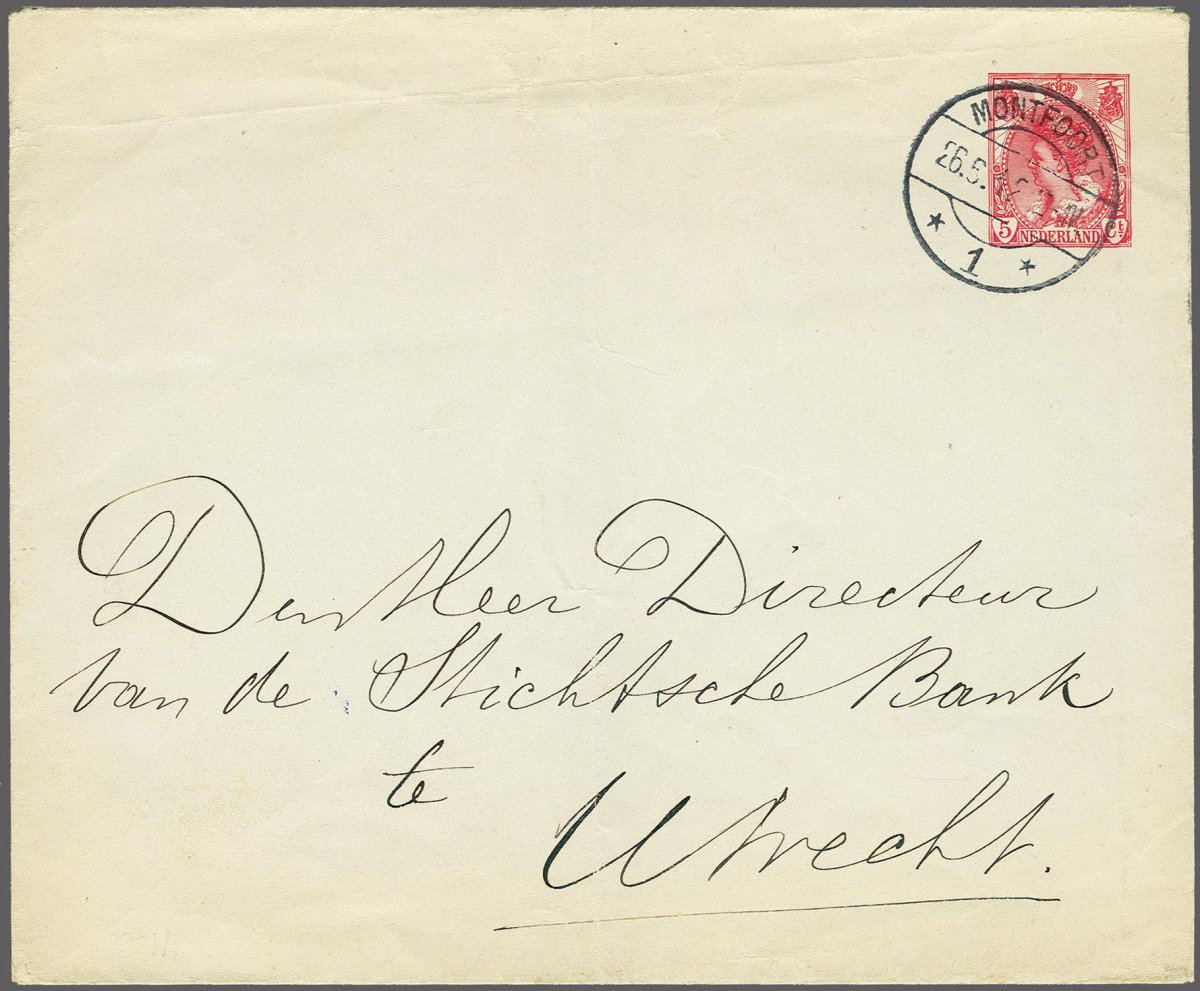 MONTFOORT
26.5.
1
5 NEDERLAND Ct
Den Heer Directeur
van de Stichtsche Bank
te
Utrecht.